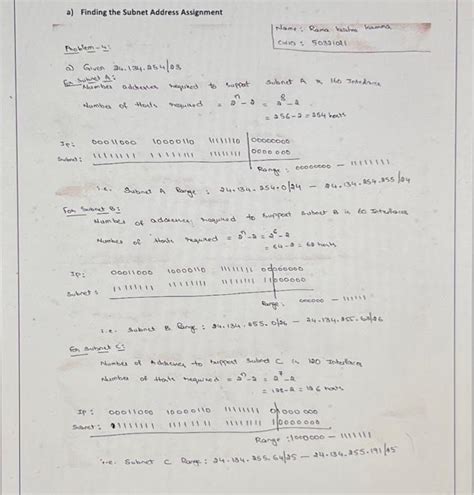 a) Finding the Subnet Address Assignment
Name : Rama
CWID : 50321021
Problem-4:
a) Given 24.134.254/23
For Subnet A:
Number addresses required to support Subnet A is 140 Interfaces
Number of Hosts required = 2^n - 2 = 2^8 - 2
= 256-2 = 254 hosts
Ip: 00011000 10000110 11111110 00000000
Subnet: 11111111 11111111 11111111 00000000
Range: 00000000 - 11111111
i.e. Subnet A Range : 24.134.254.0/24 - 24.134.254.255/24
For Subnet B:
Number of addresses required to support Subnet B is 60 Interfaces
Number of Hosts required = 2^n - 2 = 2^6 - 2
= 64-2 = 62 hosts
Ip: 00011000 10000110 11111111 00000000
Subnet: 11111111 11111111 11111111 11000000
Range: 000000 - 111111
i.e. Subnet B Range : 24.134.255.0/26 - 24.134.255.63/26
For Subnet C:
Number of Addresses to support Subnet C is 120 Interfaces
Number of Hosts required = 2^n - 2 = 2^7 - 2
= 128-2 = 126 hosts
Ip: 00011000 10000110 11111111 01000000
Subnet: 11111111 11111111 11111111 10000000
Range : 1000000 - 1111111
i.e. Subnet C Range : 24.134.255.64/25 - 24.134.255.191/25